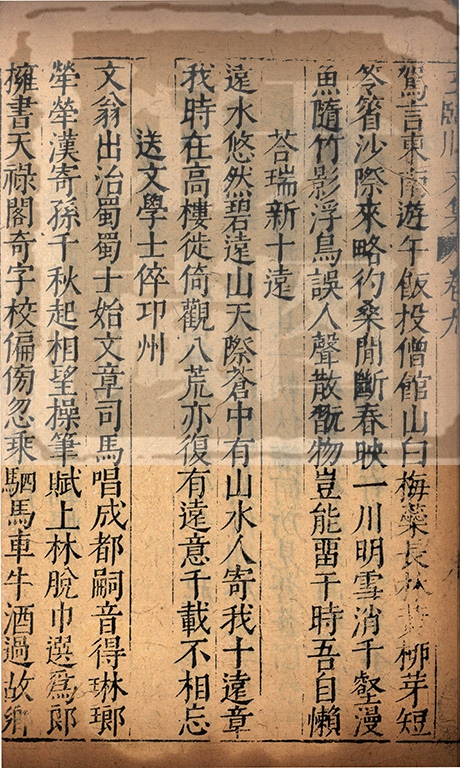 王臨川文集 卷九
駕言東南遊午飯投僧館山白梅蘂長林黃柳芽短
笭箵沙際來略彴桑間斷春映一川明雪消千壑漫
魚隨竹影浮鳥誤人聲散翫物豈能留干時吾自懶
荅瑞新十遠
遠水悠然碧遠山天際蒼中有山水人寄我十遠章
我時在高樓徙倚觀八荒亦復有遠意千載不相忘
送文學士倅邛州
文翁出治蜀蜀士始文章司馬唱成都嗣音得琳瑯
犖犖漢寄孫千秋起相望操筆賦上林脫巾選爲郎
擁書天祿閣奇字校偏傍忽乘駟馬車牛酒過故鄉